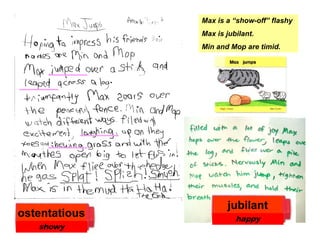 Max Jumps
Hoping to impress his friends
names are Min and Mop
Max jumped over a stick and
leaped across a log.
triumfantly Max zoars over
the fence. Min and Mop
watch different ways filled
excitement, laughing, up on they
grass and with the
mouthes open big to let flys in.
When Max flies over the
he gas Splat! Splish! Smush
Max is in the mud Ha Ha Ha!
The End
ostentatious
showy
Max is a “show-off” flashy
Max is jubilant.
Min and Mop are timid.
Max jumps
filled with a lot of joy Max
hops over the flower, leaps over
the log, and flies over a pile
of sticks. Nervously Min and
Mop watch him jump, tighten
their muscles, and hold their
breath
jubilant
happy